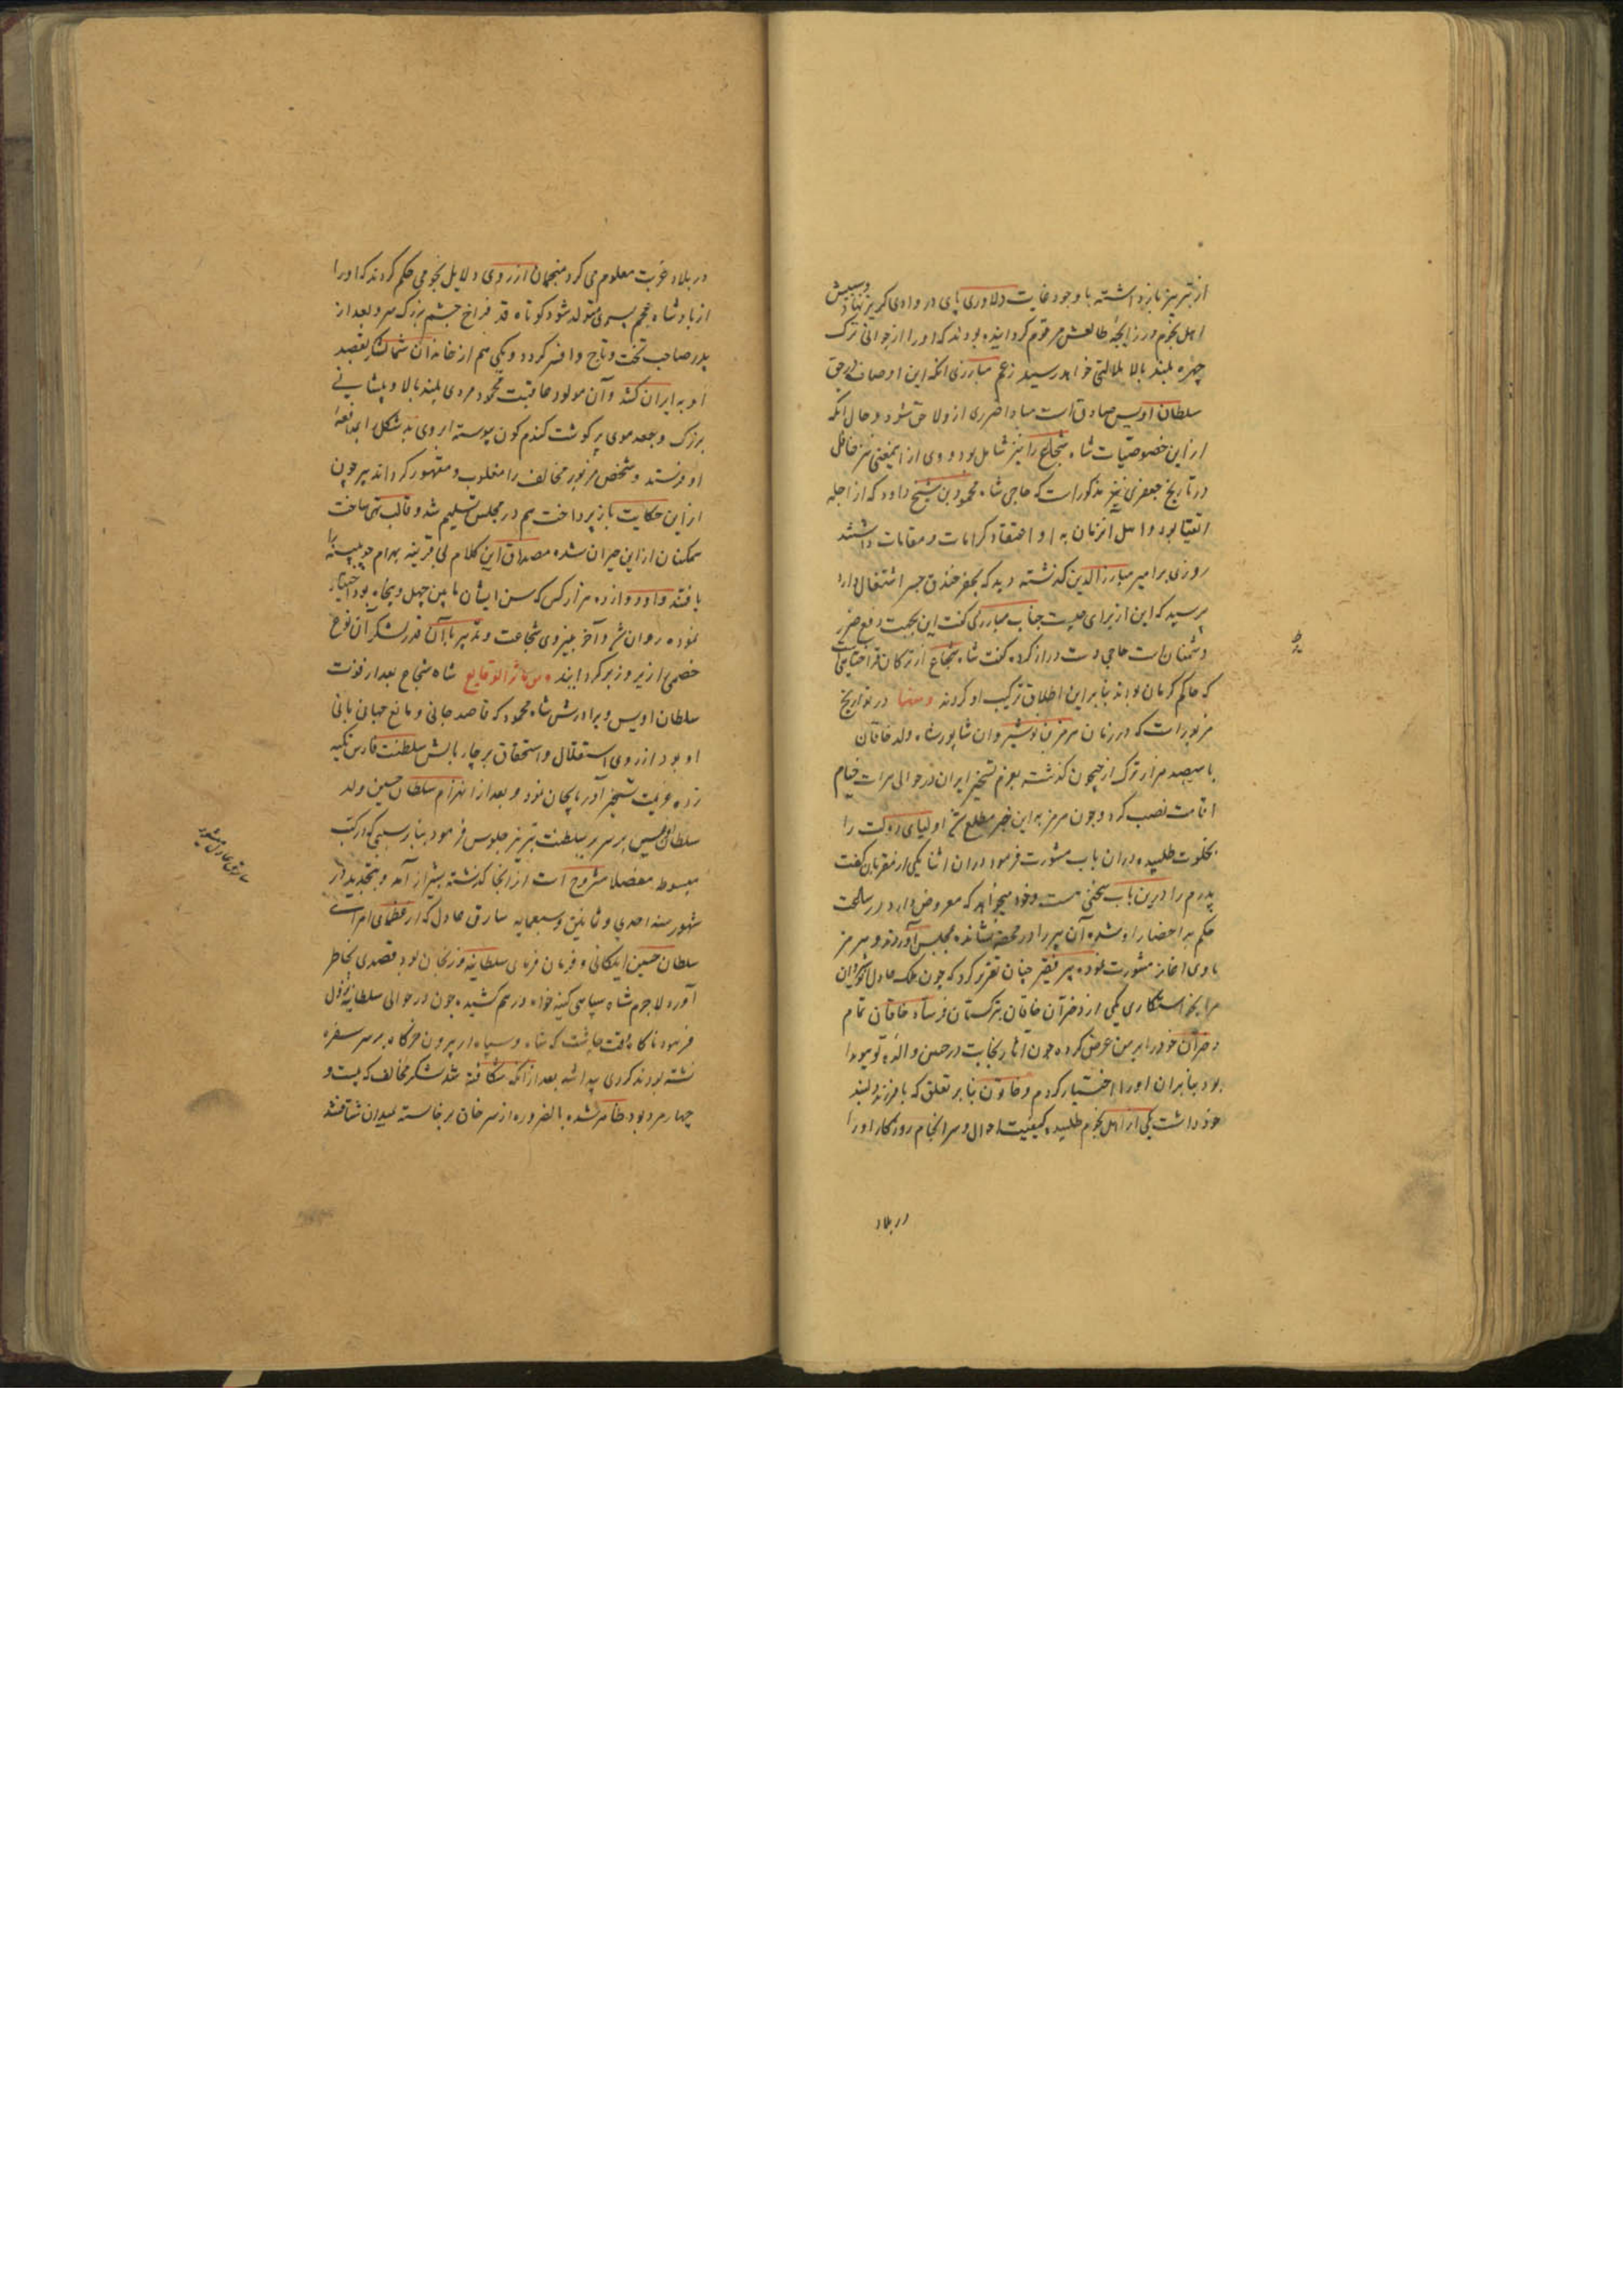 از تبریز باز داشته با وجود غایت دلاوری پای در وادی گریز نهاد و سببش
اهل نجوم در زایجهٔ طالعش مرقوم گردانیده بودند که او را از جوانی ترک
چهره بلند بالا ملالتی خواهد رسید زعم مبارزی آنکه این اوصاف در حق
سلطان اویس صادق است مبادا ضرری ازو لاحق شود و حال آنکه
از این خصوصیات شاه شجاع را نیز شامل بود و وی از اینمعنی نیز غافل
در تاریخ جعفری نیز مذکور است که حاجی شاه محمود بن شیخ داود که از اجله
اتقیا بود و اهل آنزمان به او اعتقاد کرامات و مقامات داشتند
روزی بر امیر مبارزالدین گذشته دید که بحفر خندق جسر اشتغال دارد
پرسید که این از برای چیست جناب مبارزی گفت این بجهت دفع ضرر
دشمنان است حاجی دست دراز کرده گفت شاه شجاع از ترکان قراختای
که حاکم کرمان بودند بنابر این اطلاق ترکیب او کردند ومنها در تواریخ
مزبور است که در زمان هرمز بن نوشیروان شاپور شاه ولد خاقان
با سیصد هزار ترک از جیحون گذشته بعزم تسخیر ایران در حوالی هرات خیام
اقامت نصب کرد و چون هرمز به این خبر مطلع شد اولیای دولت را
بخلوت طلبیده در آن باب مشورت فرمود در آن اثنا یکی از مقربان گفت
پدرم را درین باب سخنی هست و خود میخواهد که معروض دارد در ساعت
حکم به احضار او شده آن پیر را در محفه نشانده بمجلس آوردند و هرمز
با وی آغاز مشورت نموده پیر فقیر چنان تقریر کرد که چون ملک عادل نوشیروان
مرا بخواستگاری یکی از دختران خاقان بترکستان فرستاد خاقان تمام
دختران خود را بر من عرض کرده چون آثار نجابت در جبین والدهٔ تو هویدا
بود بنابر آن او را اختیار کردم و خاتون بنابر تعلق که با فرزند دلبند
خود داشت یکی از اهل نجوم طلبیده کیفیت احوال و سرانجام روزگار او را
در بلاد
در بلاد غربت معلوم می کرد منجمان از روی دلایل نجومی حکم کردند که او را
از پادشاه عجم پسری متولد شود کوتاه قد فراخ چشم بزرگ سر و بعد از
پدر صاحب تخت و تاج و افسر گردد و یکی هم از خاندان شما لشکر بقصد
او به ایران کشد و آن مولود عاقبت محمود مردی بلند بالا و پیشانی
بزرگ و جعد موی پر گوشت گندم گون پیوسته ابروی بد شکل را بدافعهٔ
او فرستد و شخص مزبور مخالف را مغلوب و مقهور گرداند پیر چون
از این حکایت باز پرداخت هم در مجلس تسلیم شد و قالب تهی ساخت
همگنان از این حیران شده مصداق این کلام بی قرینه بهرام چوبینه را
یافتند و او دوازده هزار کس که سن ایشان مابین چهل و پنجاه بود اختیار
نموده روان شد و آخر بنیروی شجاعت و تدبیر با آن قدر لشکر آن نوع
خصمی را زیر و زبر گردانیدند ومن مآثر الوقایع شاه شجاع بعد از فوت
سلطان اویس و برادرش شاه محمود که قاصد جانی و مانع جهانبانی
او بود از روی استقلال و استحقاق بر چار بالش سلطنت فارس تکیه
زده عزیمت تسخیر آذربایجان نمود و بعد از انهزام سلطان حسین ولد
سلطان اویس بر سریر سلطنت تبریز جلوس فرمود بنابر سببی که در کتب
مبسوطه مفصلا مشروح است از آنجا گذشته بشیراز آمد و بتجدید در
شهور سنه احدی و ثمانین و سبعمایه سارق عادل که از عظمای امرای
سلطان حسین ایلکانی و فرمان فرمای سلطانیه و زنجان بود قصدی بخاطر
آورد لاجرم شاه سپاهی کینه خواه درهم کشیده چون در حوالی سلطانیه نزول
فرمود ناگاه وقت چاشت که شاه و سپاه از بیرون خرگاه بر سر سفره
نشسته بودند گردی پیدا شد بعد از آنکه شکافته شد لشکر مخالف که بیست و
چهار مرد بود ظاهر شده بالضروره از سر خان برخاسته بمیدان شتافتند